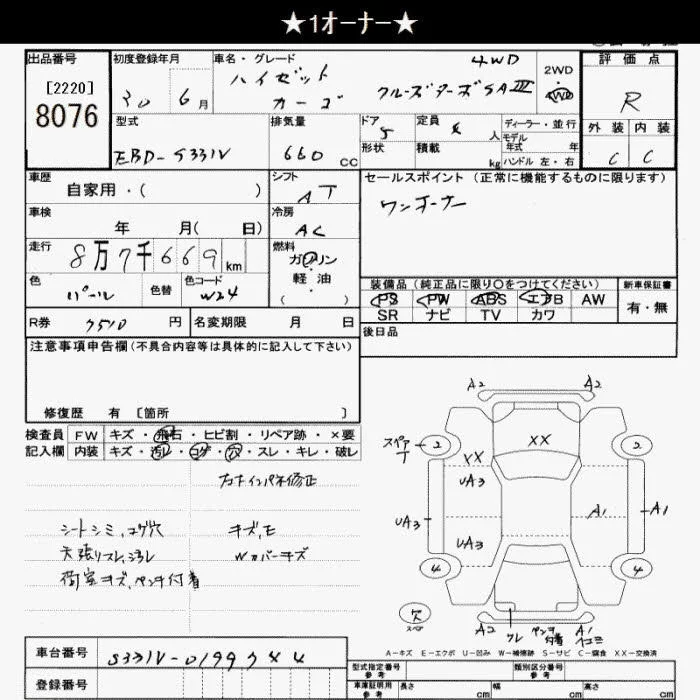 ★1オーナー★
出品番号
[2220]
8076
初度登録年月
30 6月
車名・グレード
ハイゼット
カーゴ
4WD
クルーズターボSAⅢ
2WD
4WD
評価点
R
外装 内装
C C
型式
EBD-S331V
排気量
660 cc
ドア
5
形状
定員
4 人
積載
kg
ディーラー・並行
モデル
年式 年
ハンドル 左・右
車歴
自家用・( )
シフト
AT
セールスポイント(正常に機能するものに限ります)
ワンオーナー
車検
年 月( 日)
冷房
AC
走行
8万7千669km
燃料
ガソリン
軽油
( )
色
パール
色替
色コード
W24
装備品(純正品に限り〇をつけてください)
PS PW ABS エアB AW
SR ナビ TV カワ
新車保証書
有・無
R券
7510 円
名変期限 月 日
後日品
注意事項申告欄(不具合内容等は具体的に記入して下さい)
修復歴 有 [箇所 ]
検査員
記入欄
FW キズ・飛石・ヒビ割・リペア跡・×要
内装 キズ・汚レ・コゲ・穴・スレ・キレ・破レ
シートシミ、コゲ穴
天張リスレ、ヨゴレ
荷室キズ、ペンキ付着
キズ、E
Wカバーキズ
A2 A2
スペア
T
2 2
XX
XX
UA3
UA3
UA3
A1
A1
4 4
欠
スペア
A2
ペンキ
付着
A1
A-キズ E-エクボ U-凹み W-補修跡 S-サビ C-腐食 XX-交換済
車台番号
S331V-0199744
登録番号
型式指定番号
参考
類別区分番号
参考
車庫証明用
参考
長さ cm
幅 cm
高さ cm